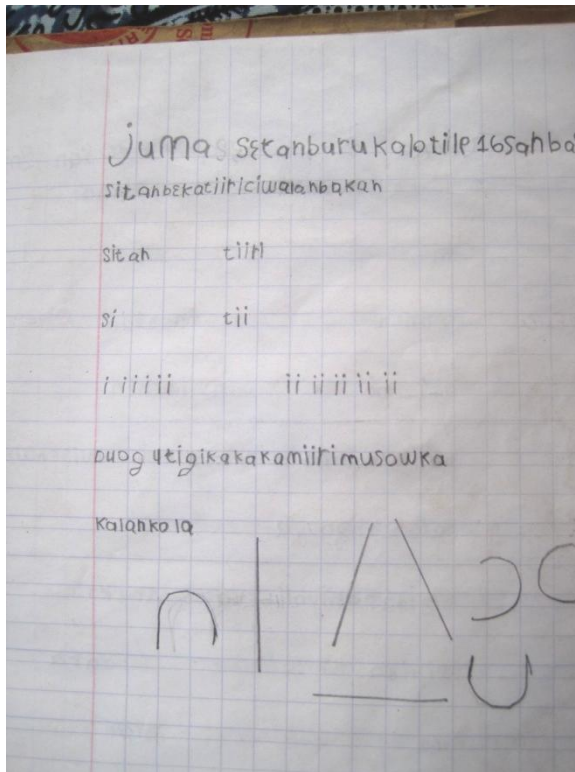 juma sɛtanburukalotile 16sanba
sitanbɛkatiiriciwalanbakan
sitan tiiri
si tii
i i i i i i ii ii ii ii ii
dugutigikakakamiirimusowka
kalankola